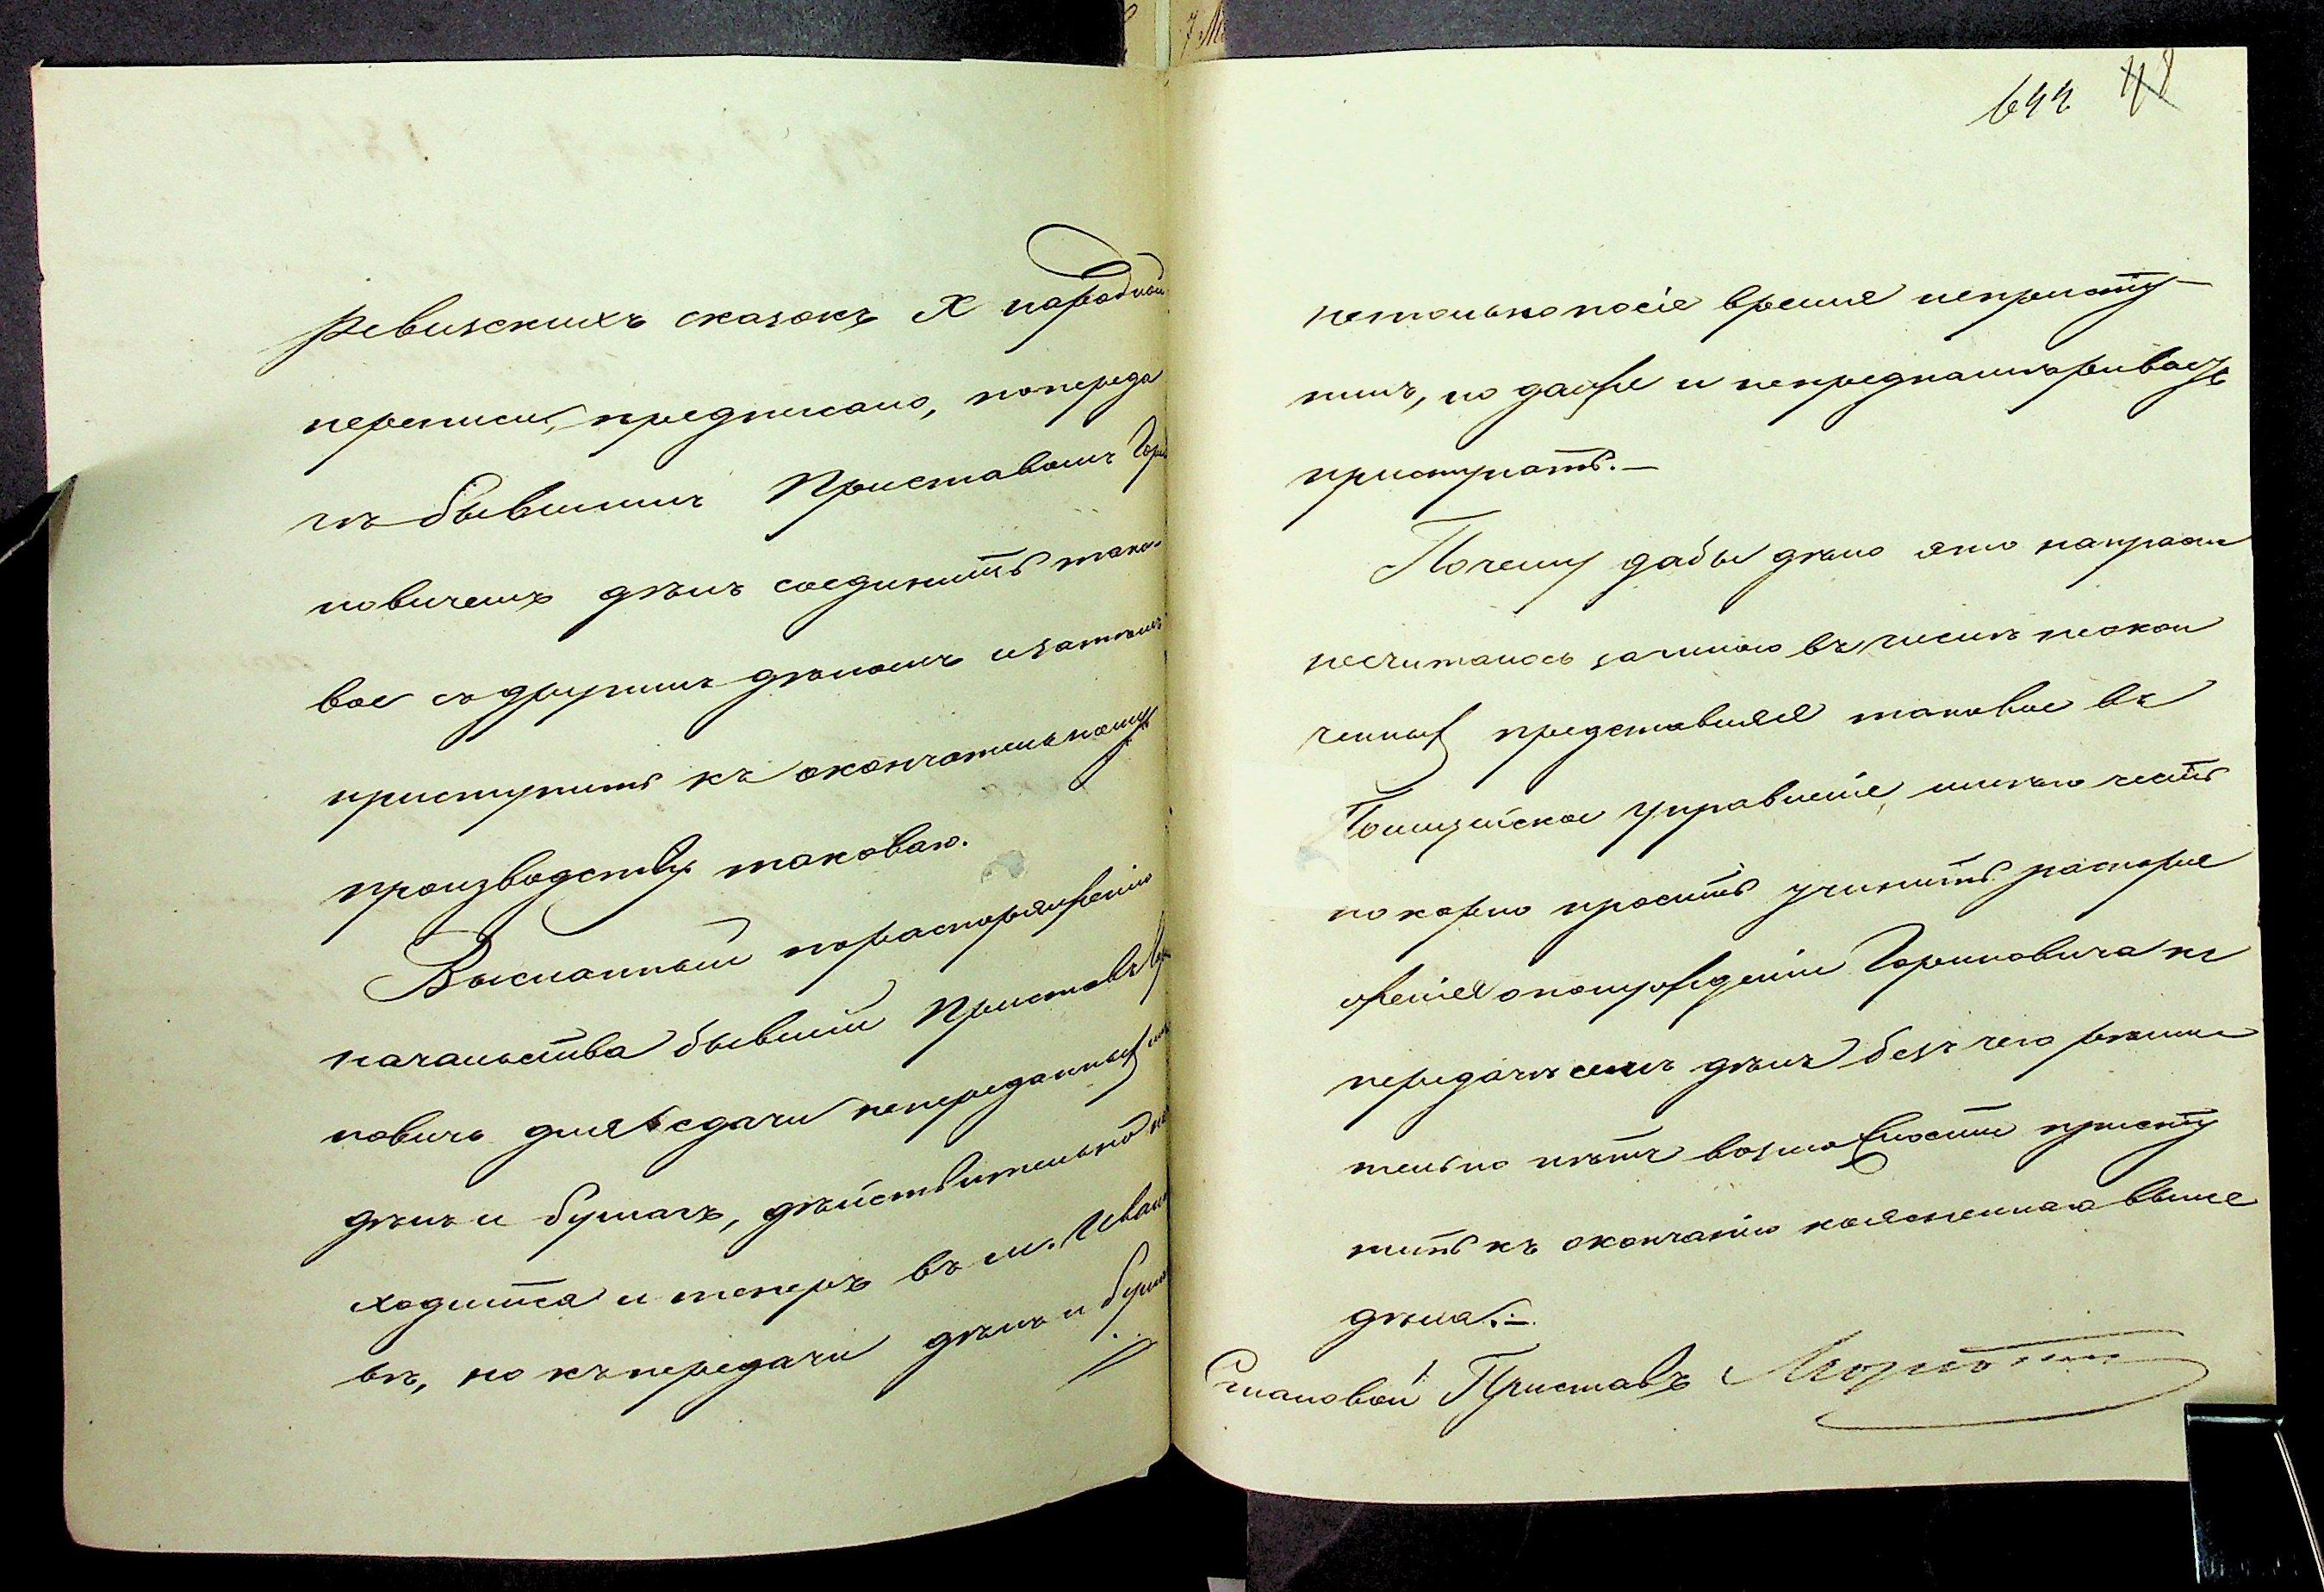 ревизскихъ сказокъ X народной
переписи, предписано, попереда
чѣ бывшимъ Приставомъ Гори
новичемъ дѣлъ соединить тако-
вое съ другимъ дѣломъ изатѣмъ
приступить къ окончательному
производству таковаго.
Высланный пораспоряженію
начальства бывшій Приставъ Гори
новичъ для сдачи непереданныхъ
дѣлъ и бумагъ, дѣйствительно на
ходится и теперь въ м. Ивано
вѣ, но къ передачи дѣлъ и бумагъ
644 48
нетолько посіе время непристу-
пилъ, но даже и непреднамѣриваетъ
приступать.-
Почему дабы дѣло это напрасно
несчиталось замною въ числѣ неокон
ченныхъ представляя таковое въ
Полицейское Управленіе, имѣю честь
покорно просить учинить распоря
женія опонужденіи Гориновича къ
передачѣ симъ дѣлъ безъ чего рѣши
тельно нѣтъ возможности присту
пить къ окончанію поясненнаго выше
дѣла.-
Становой Приставъ